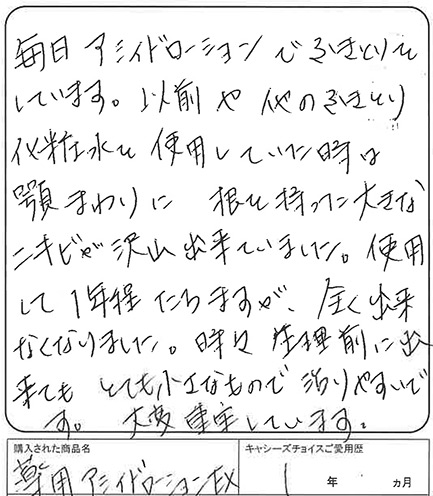 毎日アシィドローションでふきとりを
しています。以前や他のふきとり
化粧水を使用していた時は
顎まわりに根を持った大きな
ニキビが沢山出来ていました。使用
して1年程たちますが、全く出来
なくなりました。時々生理前に出
来てもとても小さなもので治りやすいで
す。大変重宝しています。
購入された商品名
キャシーズチョイスご愛用歴
薬用アシィドローションEX
1年　ヵ月